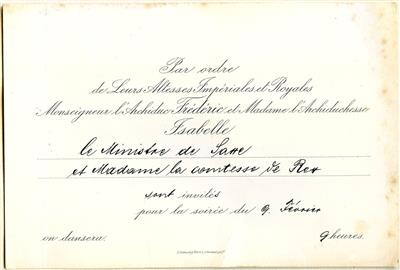 Par ordre
de Leurs Altesses Impériales et Royales
Monseigneur l'Archiduc Frédéric et Madame l'Archiduchesse
Isabelle
le Ministre de Saxe
et Madame la comtesse de Rex
sont invités
pour la soirée du 9. Février
on dansera.
9 heures.